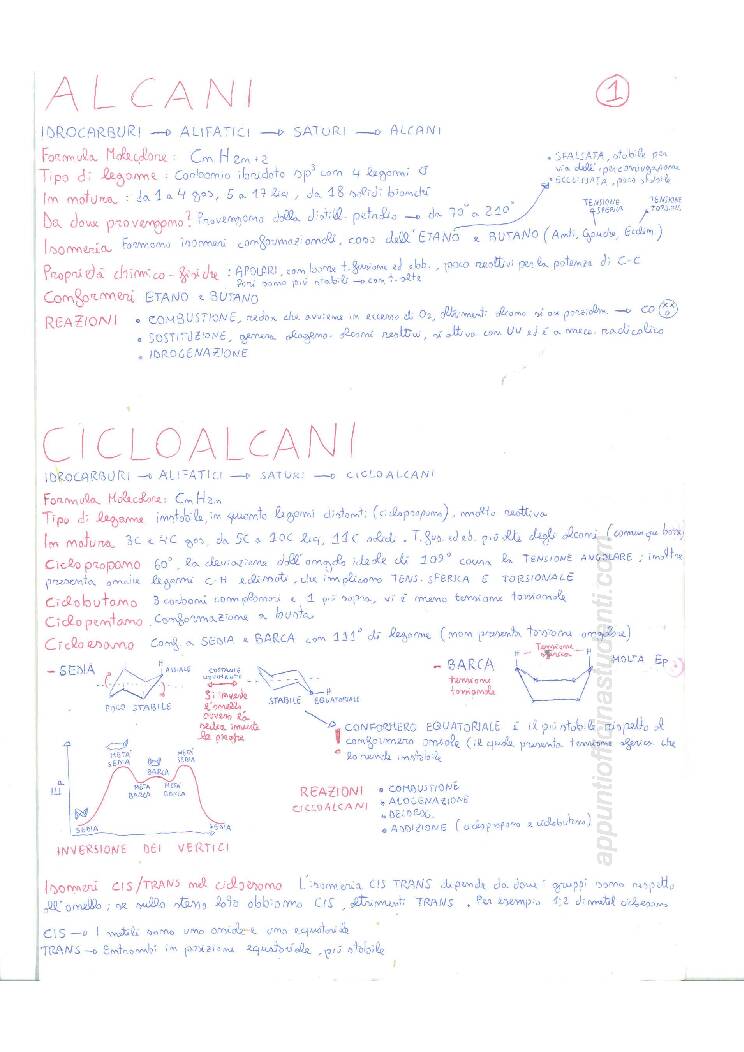 ALCANI
1
IDROCARBURI → ALIFATICI → SATURI → ALCANI
Formula Molecolare: CnH2n+2
Tipo di legame: Carbonio ibridato sp³ con 4 legami σ
In natura: da 1 a 4 gas, 5 a 17 liq, da 18 solidi bianchi
• SFALSATA, stabile per via dell'iperconiugazione
• ECLISSATA, poco stabile
TENSIONE STERICA
TENSIONE TORSION.
Da dove provengono? Provengono dalla distill. petrolio → da 70° a 210°
Isomeria Formano isomeri conformazionali, caso dell'ETANO e BUTANO (Anti, Gauche, Eclism)
Proprietà chimico-fisiche: APOLARI, con basse t. fusione ed ebb., poco reattivi per la potenza di C-C
Conformeri ETANO e BUTANO
REAZIONI • COMBUSTIONE, redox che avviene in eccesso di O2, altrimenti alcano si ox parzialm. → CO
• SOSTITUZIONE, genera alogeno-alcani reattivi, si attiva con UV ed è a mecc. radicalico
• IDROGENAZIONE
CICLOALCANI
IDROCARBURI → ALIFATICI → SATURI → CICLOALCANI
Formula Molecolare: CnH2n
Tipo di legame instabile, in quanto legami distanti (ciclopropano), molto reattivo
In natura 3C e 4C gas, da 5C a 10C liq, 11C solidi. T. fus. ed eb. più alte degli alcani (comunque basse)
Ciclopropano 60°, la deviazione dall'angolo ideale di 109° causa la TENSIONE ANGOLARE; inoltre
presenta anche legami C-H eclissati, che implicano TENS. STERICA E TORSIONALE
Ciclobutano 3 carboni complanari e 1 più sopra, vi è meno tensione torsionale
Ciclopentano Conformazione a busta
Cicloesano Conf. a SEDIA e BARCA con 111° di legame (non presenta tensione angolare)
- SEDIA
H
ASSIALE
POCO STABILE
COSTANTE MOVIMENTO
Si inverte
l'anello
ovvero la
sedia inverte
le proprie
H
STABILE EQUATORIALE
- BARCA
tensione
torsionale
H Tensione sterica H
MOLTA Ep
! CONFORMERO EQUATORIALE è il più stabile rispetto al
conformero assiale (il quale presenta tensione sterica che
lo rende instabile
Ep
SEDIA
META' SEDIA
BARCA
META' BARCA
META' BARCA
META' SEDIA
SEDIA
INVERSIONE DEI VERTICI
REAZIONI
CICLOALCANI
• COMBUSTIONE
• ALOGENAZIONE
• DEIDROG.
• ADDIZIONE (ciclopropano e ciclobutano)
Isomeri CIS/TRANS nel cicloesano L'isomeria CIS TRANS dipende da dove i gruppi sono rispetto
all'anello; se sullo stesso lato abbiamo CIS, altrimenti TRANS. Per esempio 1,2 dimetil cicloesano
CIS → I metili sono uno assiale e uno equatoriale
TRANS → Entrambi in posizione equatoriale, più stabile
appuntiofficinastudenti.com